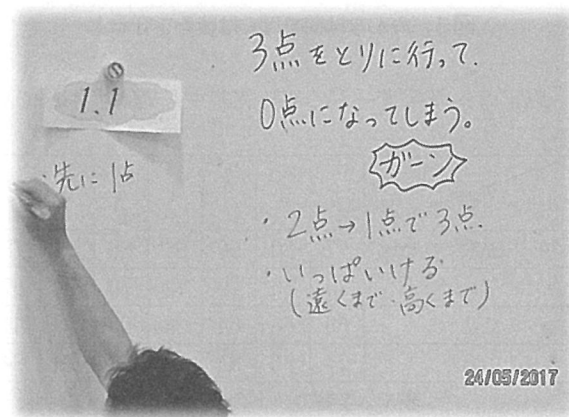 1.1
・先に1点
3点をとりに行って.
0点になってしまう。
ガーン
・2点→1点で3点.
・いっぱいいける
(遠くまで・高くまで)
24/05/2017